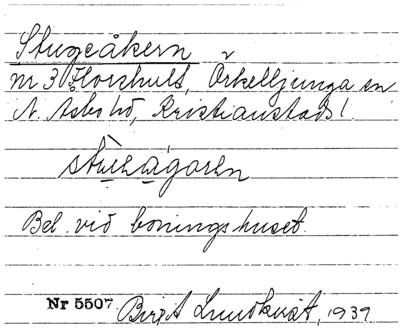 Stugeåkern
nr 3 Horshult, Örkelljunga sn
N. Åsbo hd, Kristianstads l.
Bel. vid boningshuset.
Nr 5507 Birgit Lundkvist, 1939